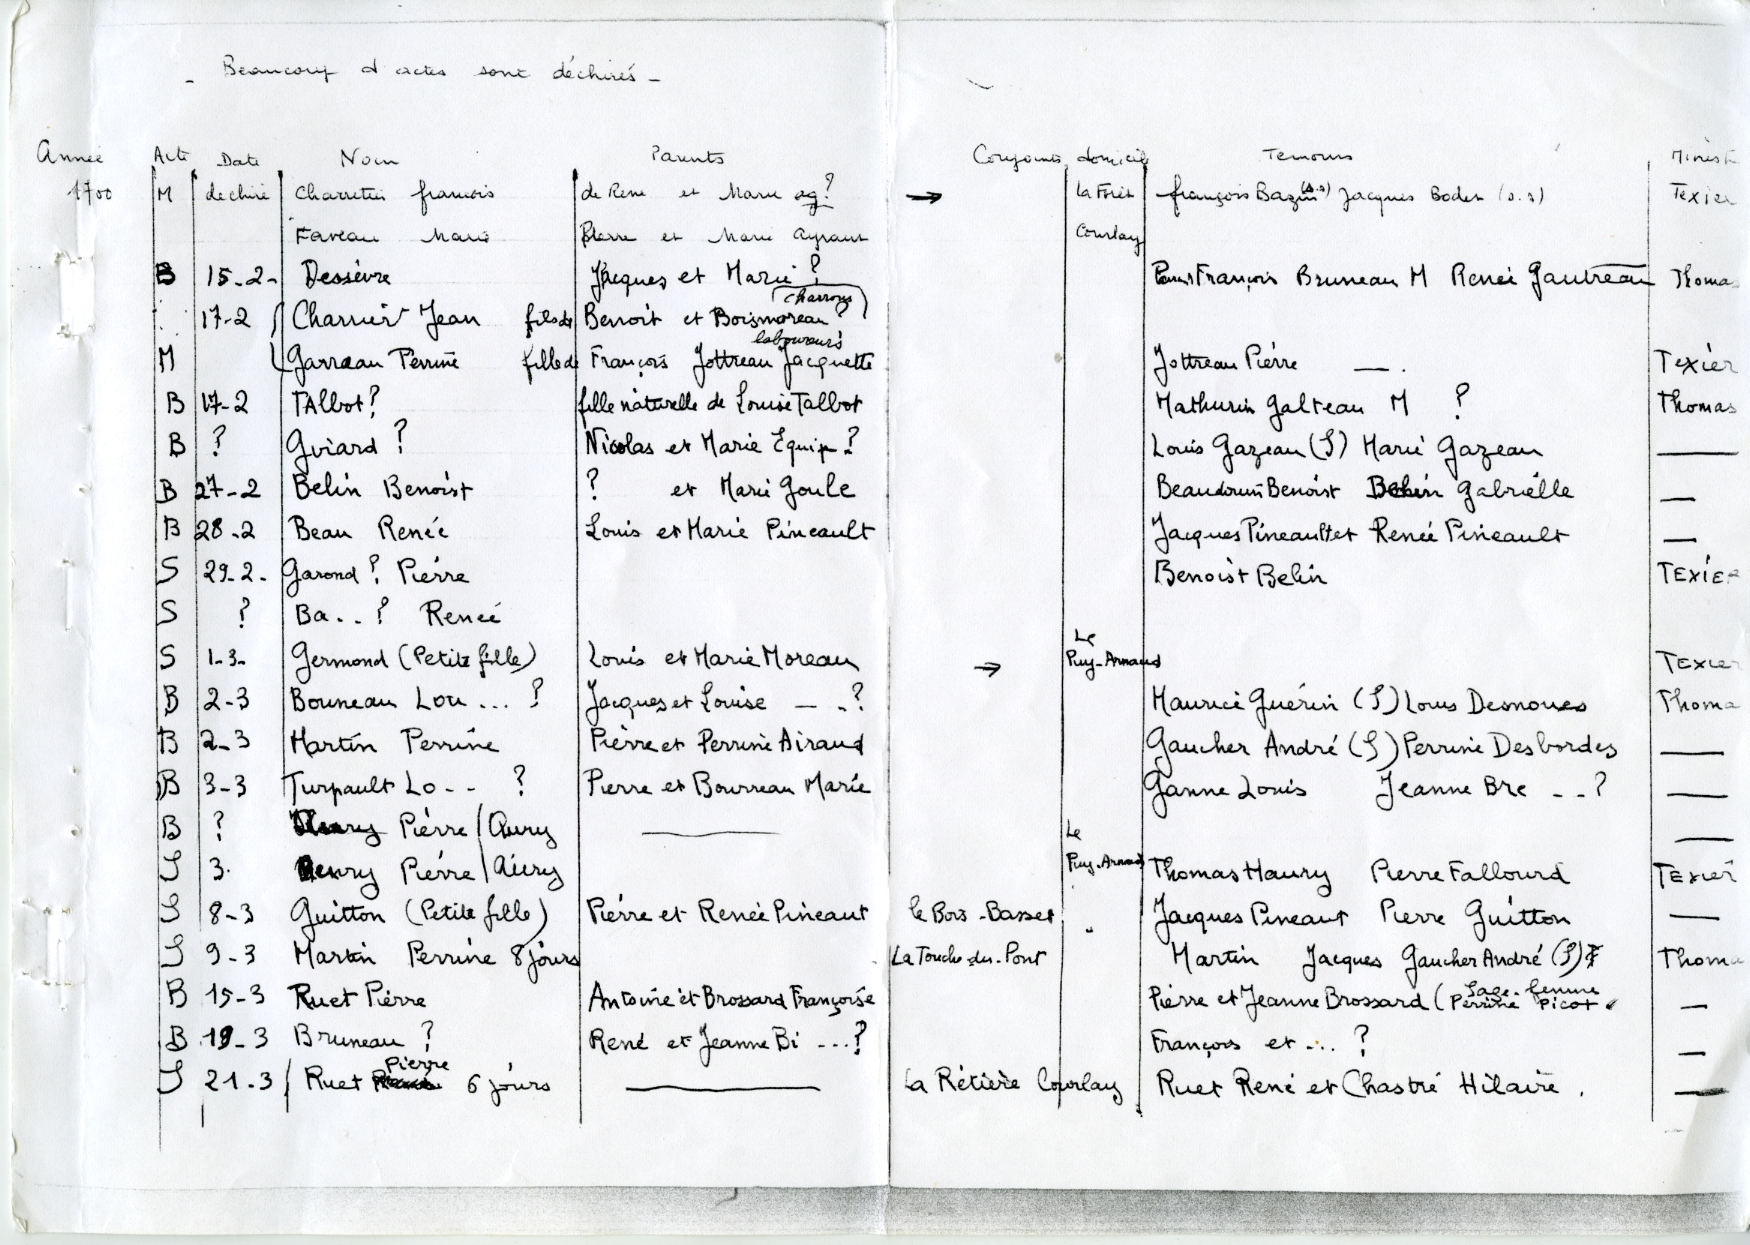 - Beaucoup d'actes sont déchirés -
Année Acte Date Nom Parents Conjoints domicile Temoins Minist
1700 M dechiré Charretier francois de Rene et Marie ag? → La Foret françois Bazin (s.s) Jacques Bodet (s.s) Texier
Faveau Marie Pierre et Marie Ayraut Courlay
B 15-2- Dessèvre Jacques et Marie ? François Bruneau M Renée Gautreau Thomas
charrons
17-2 Charrier Jean fils de Benoit et Boismoreau ?
laboureurs
M Garreau Perrine fille de François Jottreau Jacquette Jottreau Pierre — . Texier
B 17-2 TAlbot? fille naturelle de Louise Talbot Mathurin Galteau M ? Thomas
B ? Guiard ? Nicolas et Marie Equip ? Louis Gazeau (S) Marie Gazeau —
B 27-2 Belin Benoist ? et Marie Goule Beaudouin Benoist Belin Gabriélle —
B 28-2 Beau Renée Louis et Marie Pineault Jacques Pineault et Renée Pineault —
S 29-2- Garond ? Pierre Benoist Belin TEXIER
S ? Ba..? Renée
S 1-3- Germond (Petite fille) Louis et Marie Moreau → Le Puy-Arnaud TEXIER
B 2-3 Bouneau Lou ... ? Jacques et Louise — -.? Maurice Guérin (S) Louis Desnoues Thoma
B 2-3 Martin Perrine Pierre et Perrine Airaud Gaucher André (S) Perrine Desbordes —
B 3-3 Turpault Lo-- ? Pierre et Bourreau Marie Ganne Louis Jeanne Bre --? —
B ? Pierre / Aury — Le —
S 3. Henry Pierre / Aiury Puy-Arnaud Thomas Haury Pierre Fallourd TEXIER
S 8-3 Guitton (Petite fille) Pierre et Renée Pineaut le Bois-Basset Jacques Pineaut Pierre Guitton —
S 9-3 Martin Perrine 8 jours La Touche-du-Pont Martin Jacques Gaucher André (S) Thoma
B 15-3 Ruet Pierre Antoine et Brossard Françoise Pierre et Jeanne Brossard (Sage-femme Perrine Picot —
B 19-3 Bruneau ? René et Jeanne Bi ...? François et -... ? —
S 21-3 / Ruet Pierre 6 jours — La Rétière Courlay Ruet René et Chastré Hilaire . —